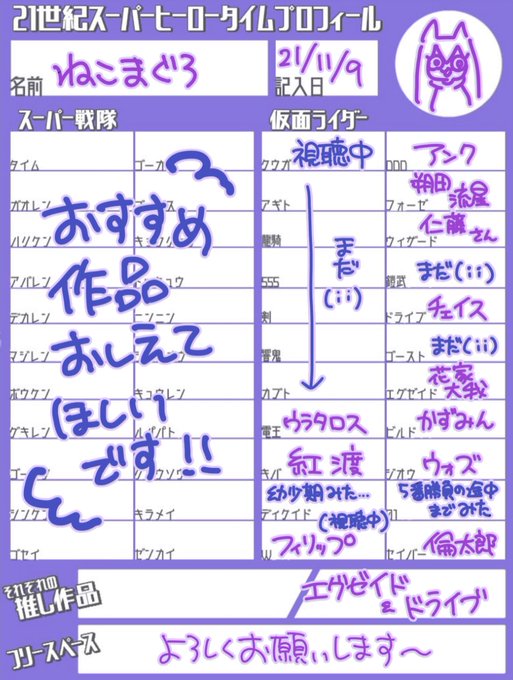 21世紀スーパーヒーロータイムプロフィール
名前 ねこまぐろ
記入日 21/11/9
スーパー戦隊
タイム
ゴーカ
ガオレン
ハリケン
アバレン
デカレン
ニンニン
マジレン
ボウケン
キュウレン
ゲキレン
ルパパト
シンケン
キラメイ
ゴセイ
ゼンカイ
おすすめ
作品
おしえて
ほしい
です!!
仮面ライダー
クウガ 視聴中
アギト
龍騎
555
剣
響鬼
カブト
まだ(ii)
電王 ウラタロス
キバ 紅渡
幼少期みた…
ディケイド (視聴中)
W フィリップ
OOO アンク
フォーゼ 朔田流星
ウィザード 仁藤さん
鎧武 まだ(ii)
ドライブ チェイス
ゴースト まだ(ii)
エグゼイド 花家大我
ビルド かずみん
ジオウ ウォズ
5番勝負の途中
までみた
01
セイバー 倫太郎
それぞれの
推し作品
エグゼイド
& ドライブ
フリースペース
よろしくお願いします〜